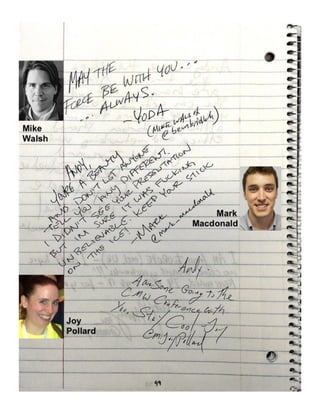 MAY THE
FORCE BE WITH YOU...
... ALWAYS.
YODA
(MIKE WALSH
Mike
Walsh
ANDY,
YOU'RE A BEAUTY
AND DON'T LET ANYONE
TELL YOU ANY DIFFERENT.
I DIDN'T SEE YOUR PRESENTATION
BUT I'M SURE IT WAS FUCKING
UNBELIEVABLE. KEEP YOUR STICK
ON THE ICE.
-MACK
@mark_macdonald
Mark
Macdonald
Andy -
Awesome Going to the
CMW Conference with
You. Stay Cool. Joy
EmJoyPollard
Joy
Pollard
49